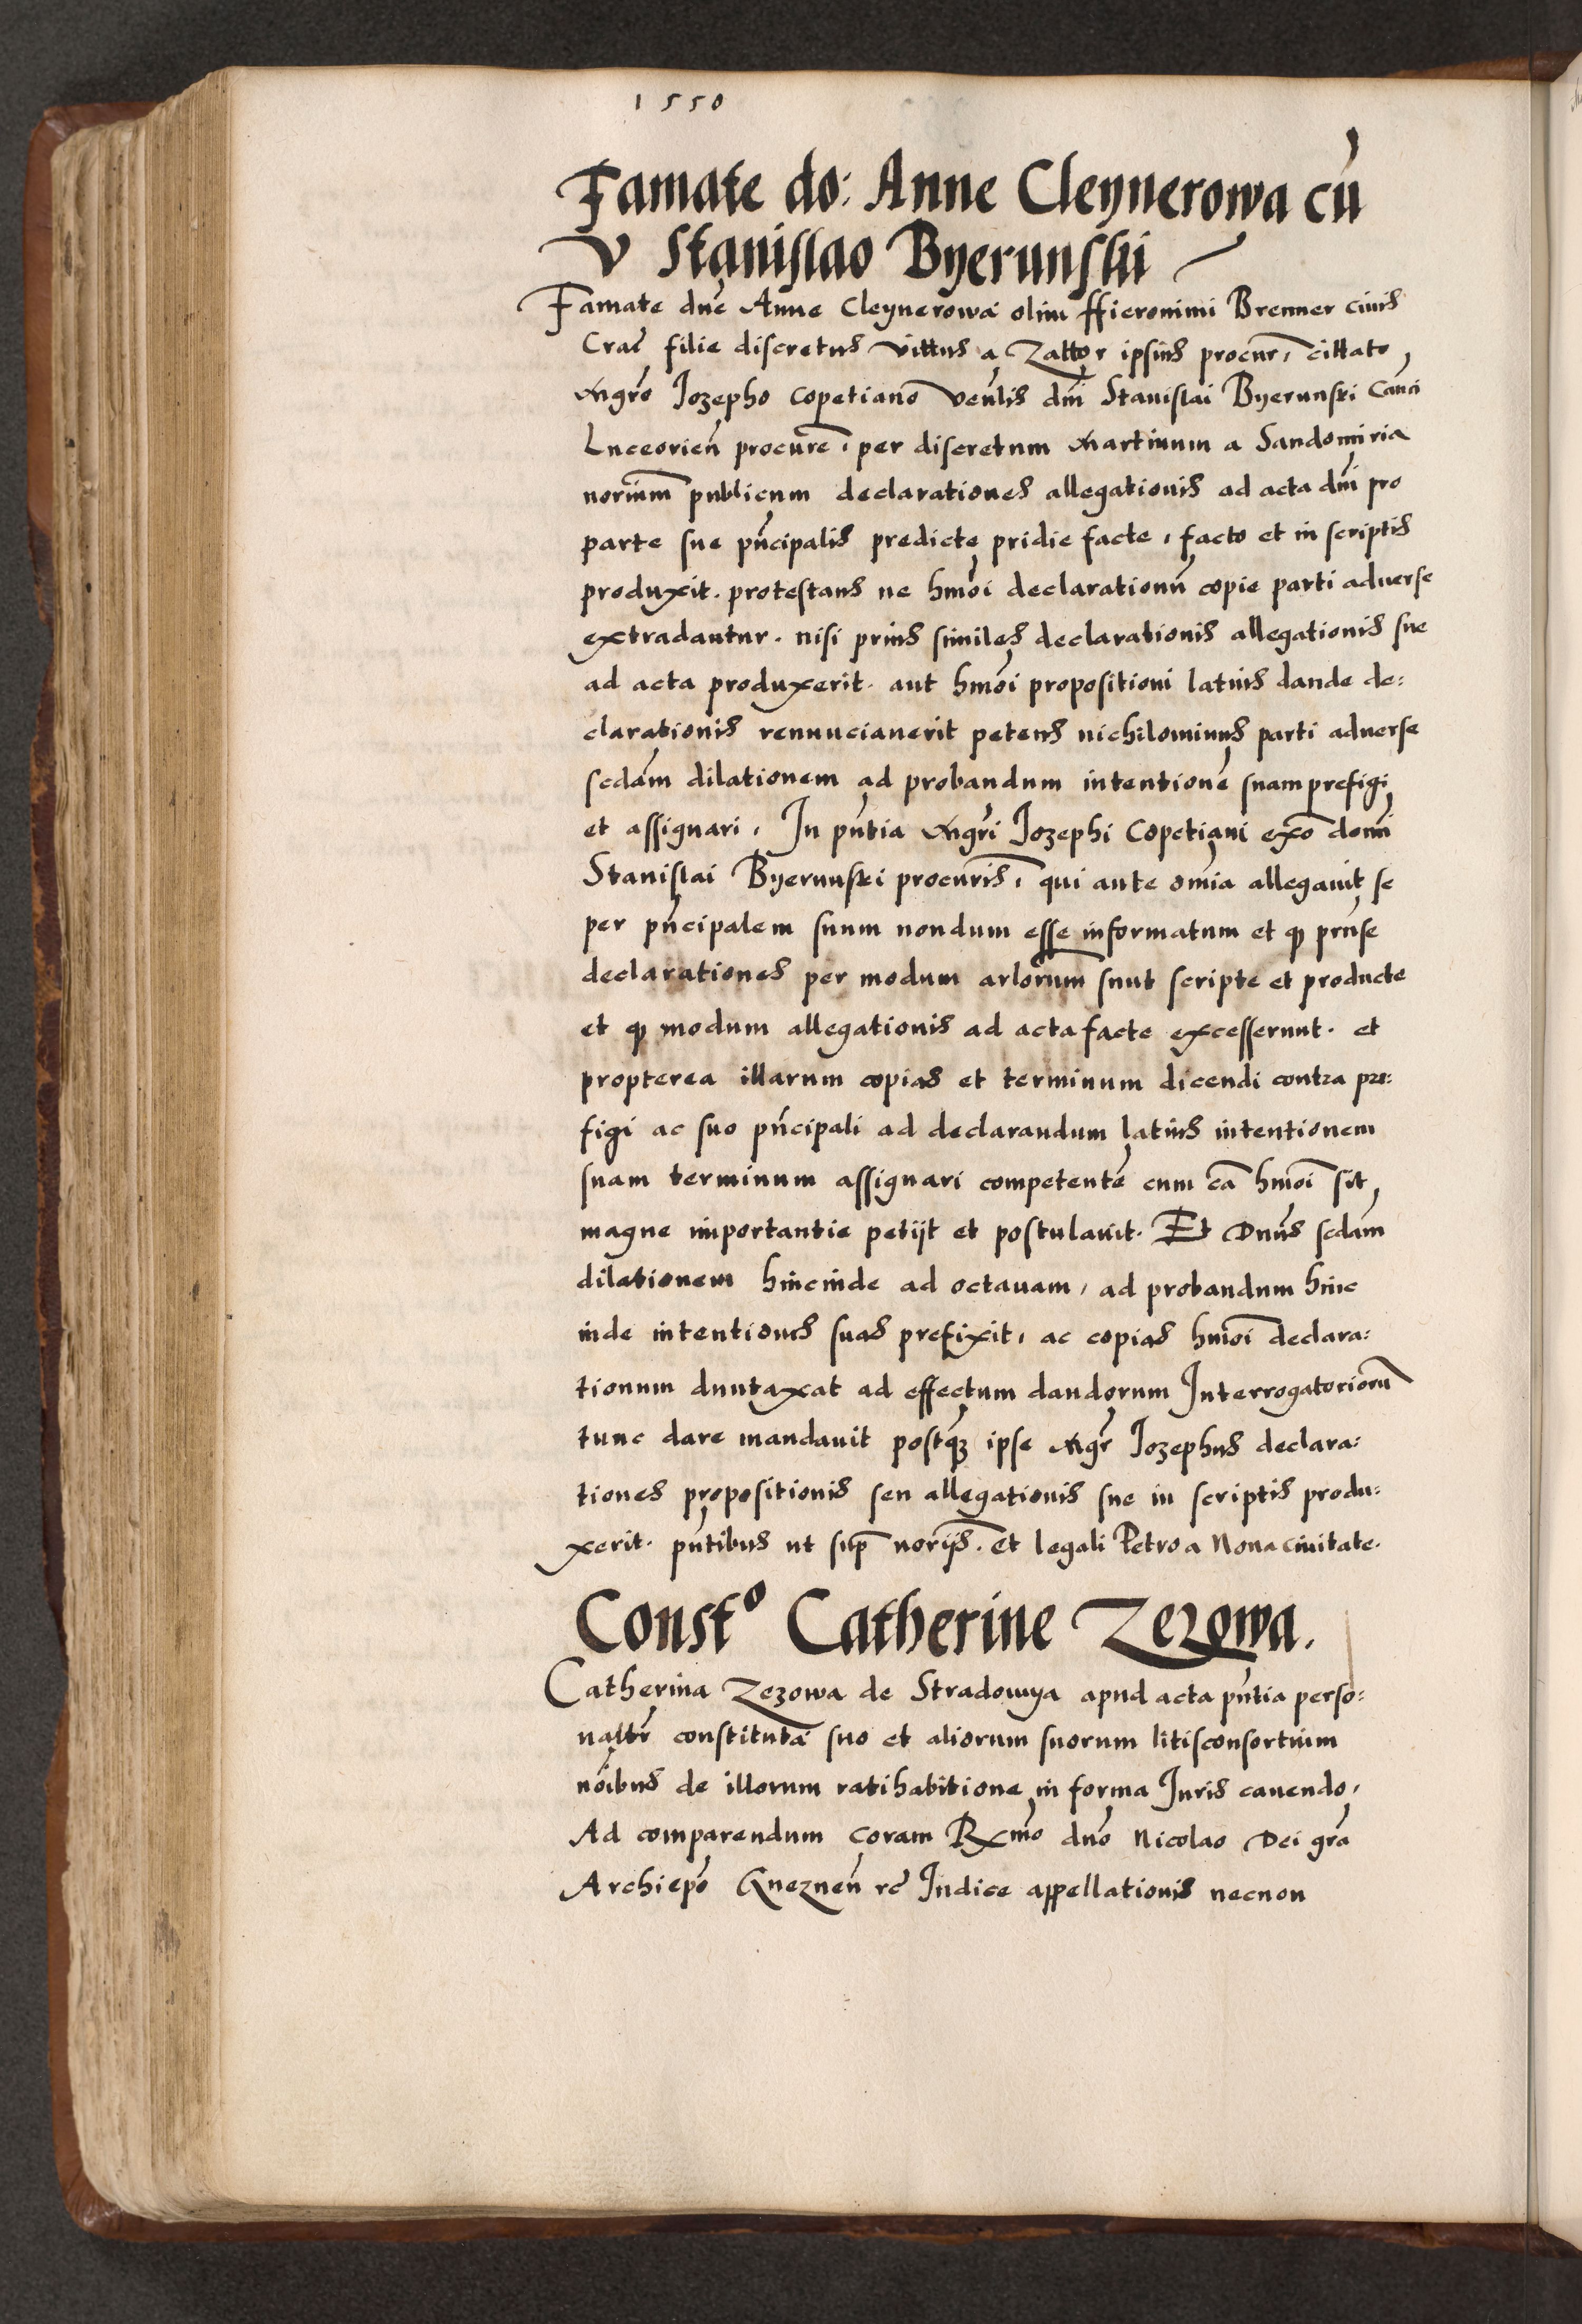 1550
Famate do: Anne Cleynerowa cū
V Stanislao Byerunski
Famate dnē Anne Cleynerowa olim Hieronimi Brenner civis
Crac̄ filie discretus vittus a Zattor ipsius procur̄, cittato
Mgrō Jozepho Copetiano venlis dnī Stanislai Byerunski Canci
Luceorien̄ procure, per discretum Martinum a Sandomiria
norium publicum declarationes allegationis ad acta dnī pro
parte sue pn̄cipalis predicte pridie facte, facto et in scriptis
produxit. protestans ne hmōi declarationū copie parti adverse
extradantur. nisi prius similes declarationis allegationis sue
ad acta produxerit. aut hmōi propositioni latius dande de:
clarationis renunciaverit petens nichilominus parti adverse
sedām dilationem ad probandum intentionē suam prefigi
et assignari, In pn̄tia Mgrī Jozephi Copetiani exō domī
Stanislai Byerunski procuris, qui ante omīa allegavit se
per pn̄cipalem suum nondum esse informatum et q̄ prn̄se
declarationes per modum arlorum sunt scripte et producte
et q̄ modum allegationis ad acta facte excesserunt. et
propterea illarum copias et terminum dicendi contra pre:
figi ac suo pn̄cipali ad declarandum latius intentionem
suam terminum assignari competentē cum cā hmōi sit
magne importantie petijt et postulavit. Et Dnūs sedām
dilationem hincinde ad octavam, ad probandum hinc
inde intentiones suas prefixit, ac copias hmōi declara:
tionum duntaxat ad effectum dandorum Interrogatoriorū
tunc dare mandavit postq̄ ipse Mgr̄ Jozephus declara:
tiones propositionis seu allegationis sue in scriptis produ:
xerit. pn̄tibus ut sup̄ norijs. et legali Petro a Nova civitate.
Constᵒ Catherine Zezowa.
Catherina Zezowa de Stradomya apud acta pn̄tia perso:
naltr̄ constituta suo et aliorum suorum litisconsortium
nōibus de illorum ratihabitione in forma Juris cavendo,
Ad comparendum coram Rxmō dnō Nicolao Dei grā
Archiepō Gneznen̄ rc̄ Iudice appellationis necnon